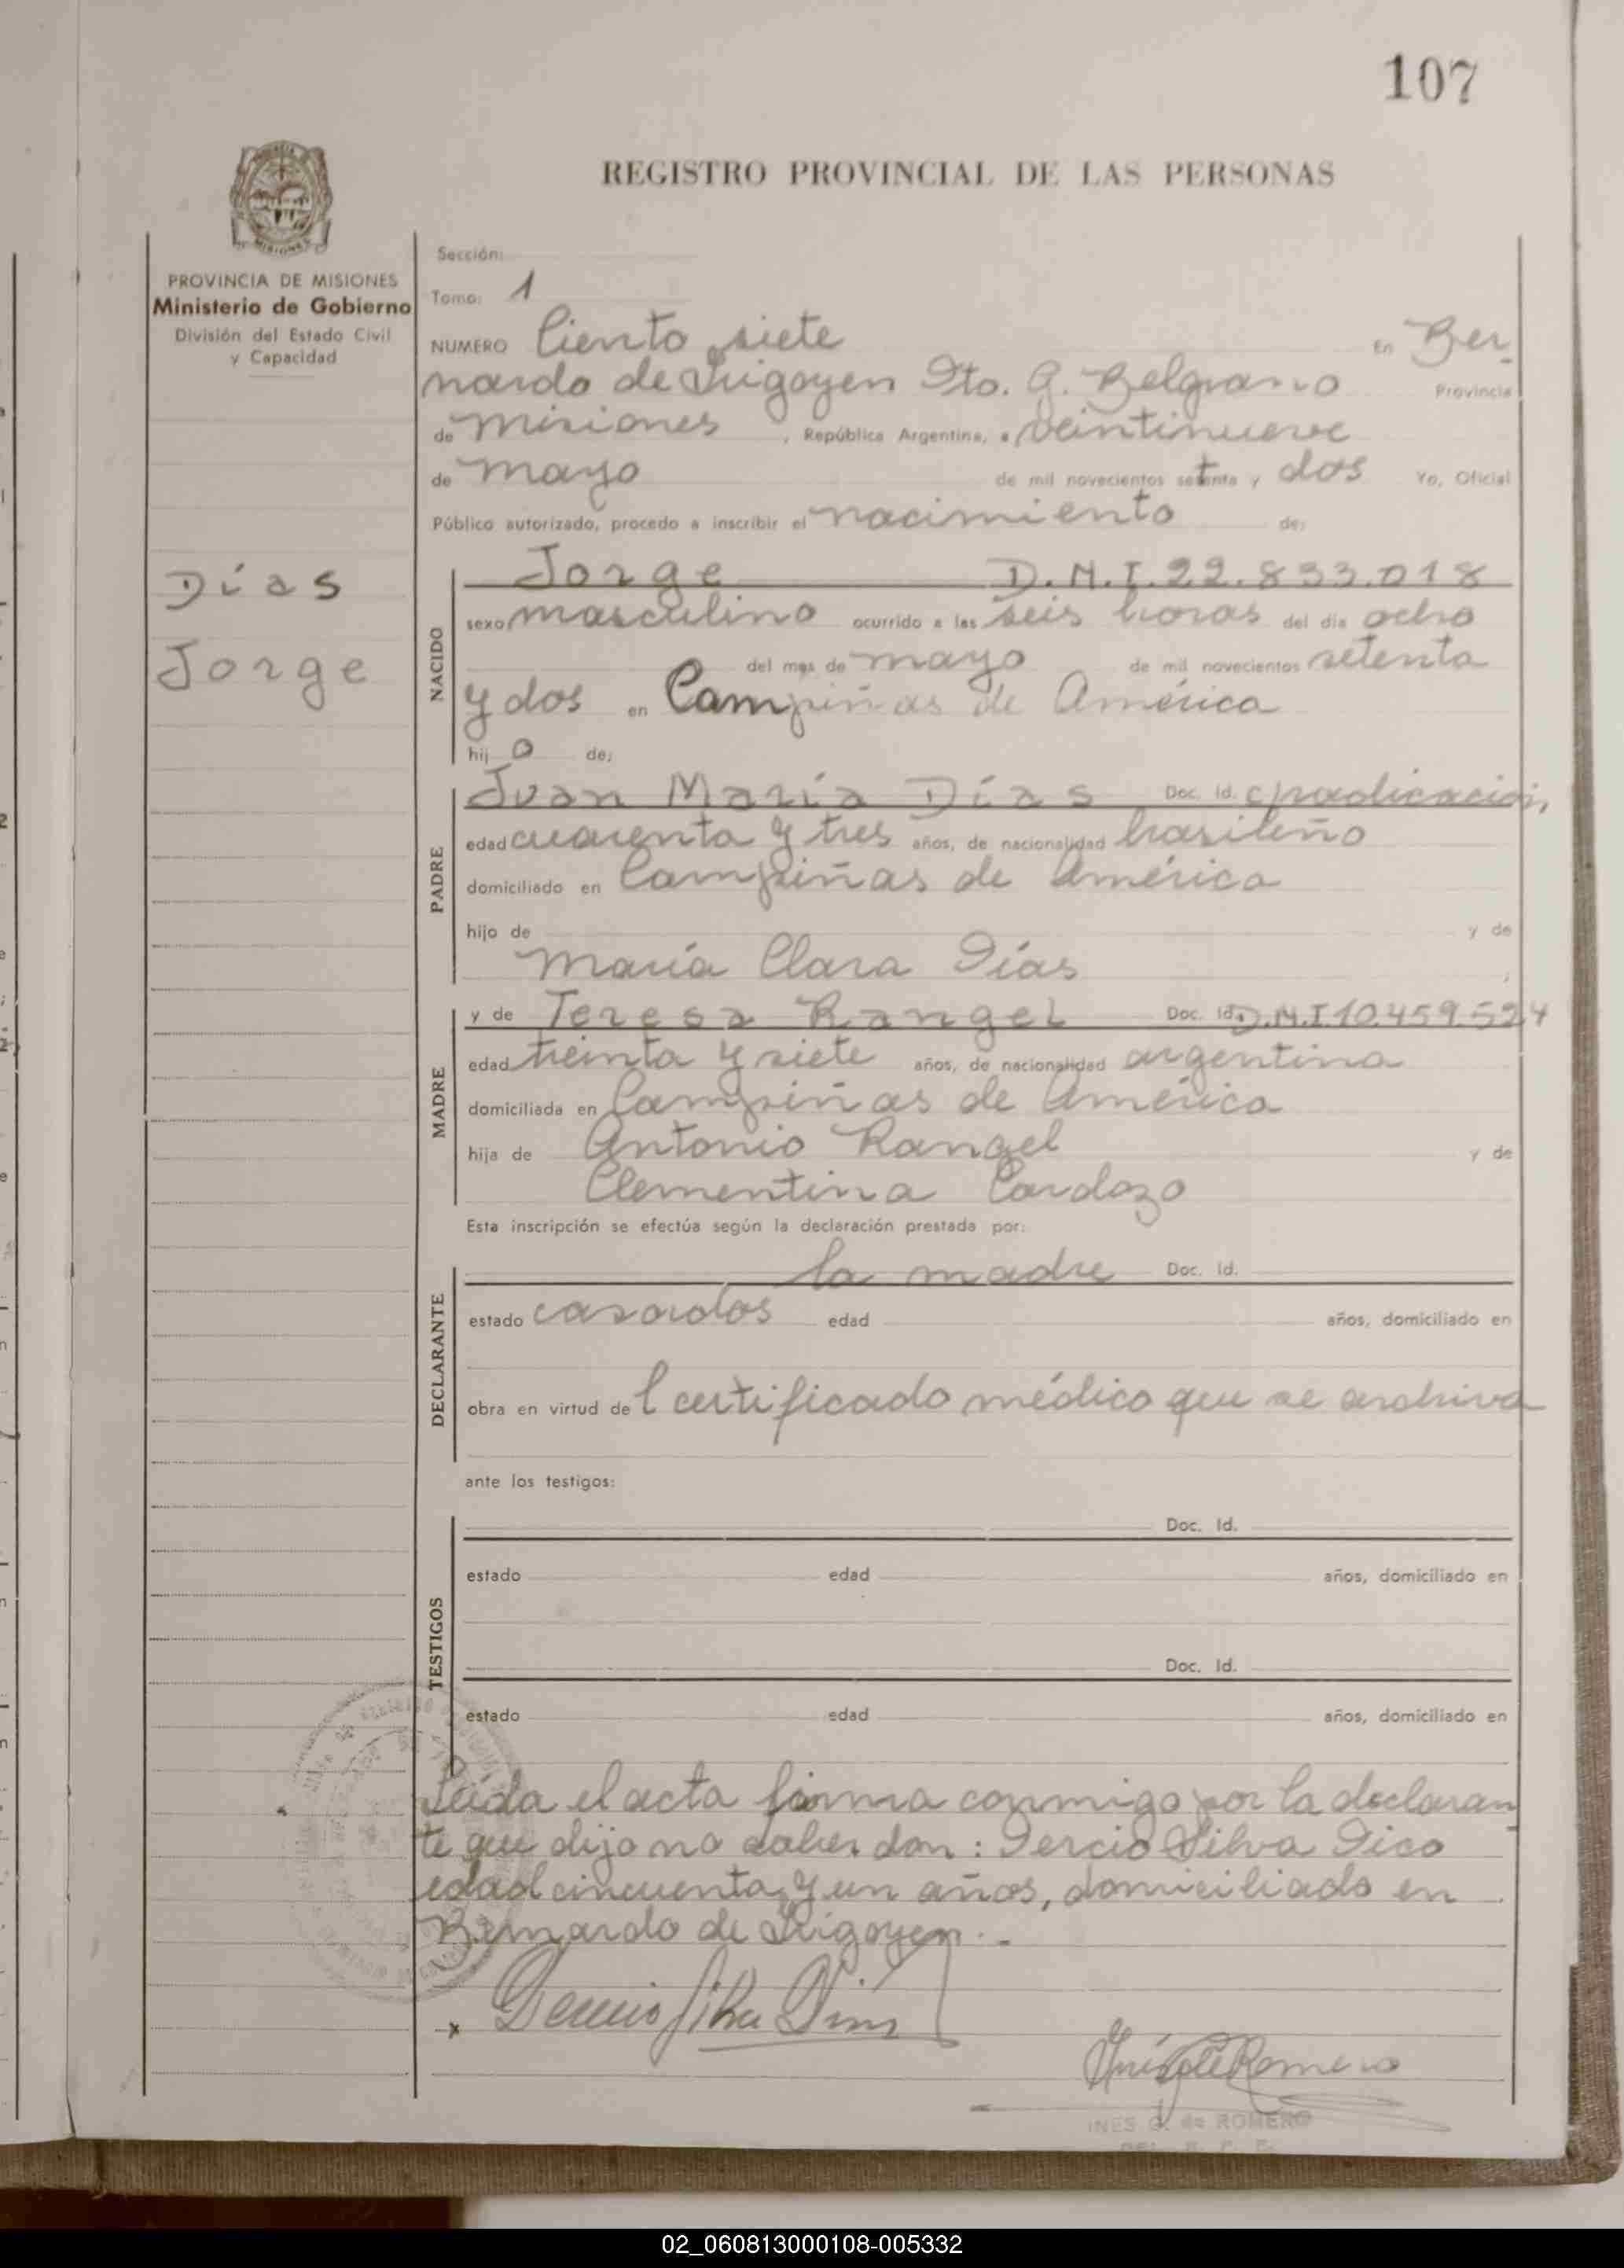 107
REGISTRO PROVINCIAL DE LAS PERSONAS
MISIONES
PROVINCIA DE MISIONES
Ministerio de Gobierno
División del Estado Civil
y Capacidad
Días
Jorge
Sección:
Tomo: 1
NUMERO Ciento siete En Ber-
nardo de Irigoyen Dto. G. Belgrano Provincia
de Misiones, República Argentina, a veintinueve
de mayo de mil novecientos setenta y dos Yo, Oficial
Público autorizado, procedo a inscribir el nacimiento de:
NACIDO
Jorge D.N.I. 22.833.018
sexo masculino ocurrido a las seis horas del día ocho
del mes de mayo de mil novecientos setenta
y dos en Campiñas de América
hijo de:
PADRE
Juan María Días Doc. Id.
edad cuarenta y tres años, de nacionalidad brasileño
domiciliado en Campiñas de América
hijo de y de
María Clara Días
MADRE
y de Teresa Rangel Doc. Id. D.N.I 10.459.524
edad treinta y siete años, de nacionalidad argentina
domiciliada en Campiñas de América
hija de Antonio Rangel y de
Clementina Cardozo
Esta inscripción se efectúa según la declaración prestada por:
DECLARANTE
la madre Doc. Id.
estado casados edad años, domiciliado en
obra en virtud del certificado médico que se archiva
ante los testigos:
TESTIGOS
Doc. Id.
estado edad años, domiciliado en
Doc. Id.
estado edad años, domiciliado en
Leída el acta firma conmigo por la declaran-
te que dijo no saber don: Dercio Silva Dico
edad cincuenta y un años, domiciliado en
Bernardo de Irigoyen.-
INES G. de ROMERO
02_060813000108-005332